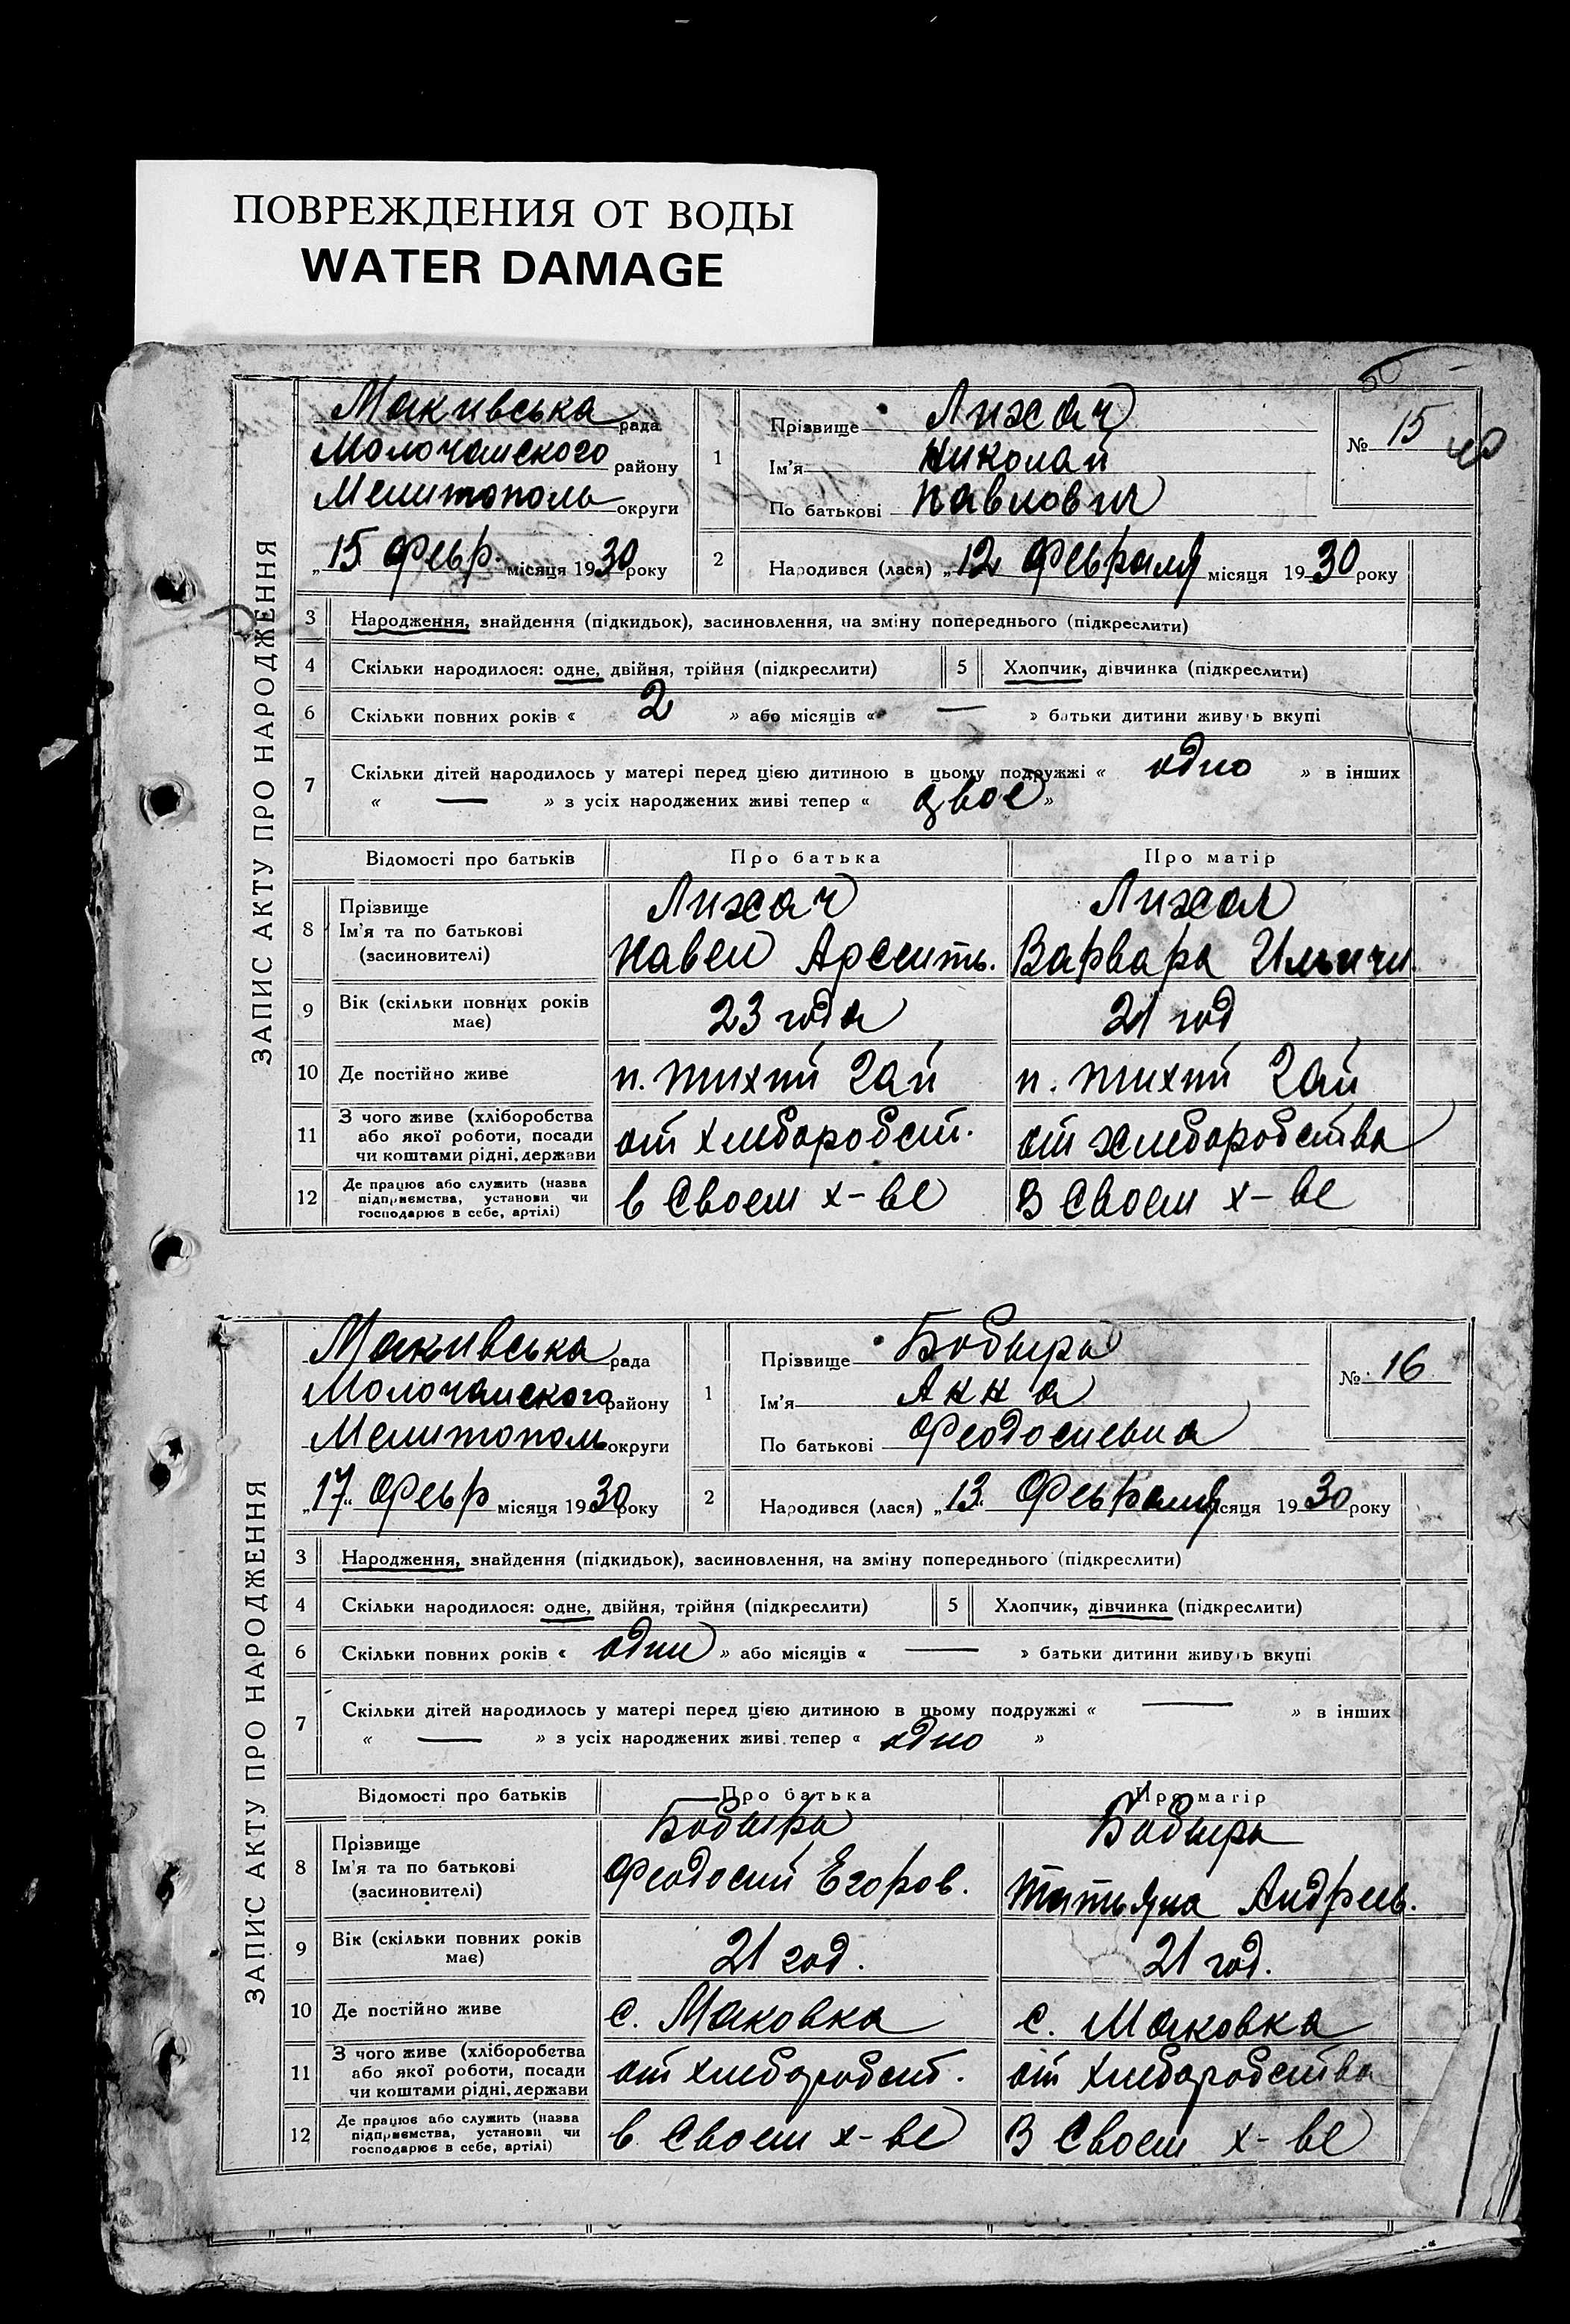 ПОВРЕЖДЕНИЯ ОТ ВОДЫ
WATER DAMAGE
ЗАПИС АКТУ ПРО НАРОДЖЕННЯ
Макивська рада
Молочанского району
Мелитополь округи
„15 Февр. місяця 1930 року
1
Прізвище Лихач
Ім'я Николай
По батькові Павлович
№ 15
2
Народився (лася) „12 Февраля місяця 1930 року
3 Народження, знайдення (підкидьок), засиновлення, на зміну попереднього (підкреслити)
4 Скільки народилося: одне, двійня, трійня (підкреслити) 5 Хлопчик, дівчинка (підкреслити)
6 Скільки повних років « 2 » або місяців « — » батьки дитини живуть вкупі
7 Скільки дітей народилось у матері перед цією дитиною в цьому подружжі « одно » в інших
« — » з усіх народжених живі тепер « двое »
Відомості про батьків Про батька Про матір
8 Прізвище Лихач Лихач
Ім'я та по батькові Павел Арсенть. Варвара Ильичн.
(засиновителі)
9 Вік (скільки повних років має) 23 года 21 год
10 Де постійно живе п. тихий Гай п. тихий Гай
11 З чого живе (хліборобства або якої роботи, посади чи коштами рідні, держави от хлеборобст. от хлеборобства
12 Де працює або служить (назва підприємства, установи чи господарює в себе, артілі) в своем х-ве В своем х-ве
ЗАПИС АКТУ ПРО НАРОДЖЕННЯ
Макивська рада
Молочанского району
Мелитополь округи
„17“ Февр місяця 1930 року
1
Прізвище Бобырь
Ім'я Анна
По батькові Феодосиевна
№ 16
2
Народився (лася) „13. Февраля місяця 1930 року
3 Народження, знайдення (підкидьок), засиновлення, на зміну попереднього (підкреслити)
4 Скільки народилося: одне, двійня, трійня (підкреслити) 5 Хлопчик, дівчинка (підкреслити)
6 Скільки повних років « один » або місяців « — » батьки дитини живуть вкупі
7 Скільки дітей народилось у матері перед цією дитиною в цьому подружжі « — » в інших
« — » з усіх народжених живі тепер « одно »
Відомості про батьків Про батька Про матір
8 Прізвище Бобырь Бобырь
Ім'я та по батькові Феодосий Егоров. Татьяна Андреев.
(засиновителі)
9 Вік (скільки повних років має) 21 год. 21 год.
10 Де постійно живе с. Маковка с. Маковка
11 З чого живе (хліборобства або якої роботи, посади чи коштами рідні, держави от хлеборобст. от хлеборобства
12 Де працює або служить (назва підприємства, установи чи господарює в себе, артілі) в своем х-ве В своем х-ве